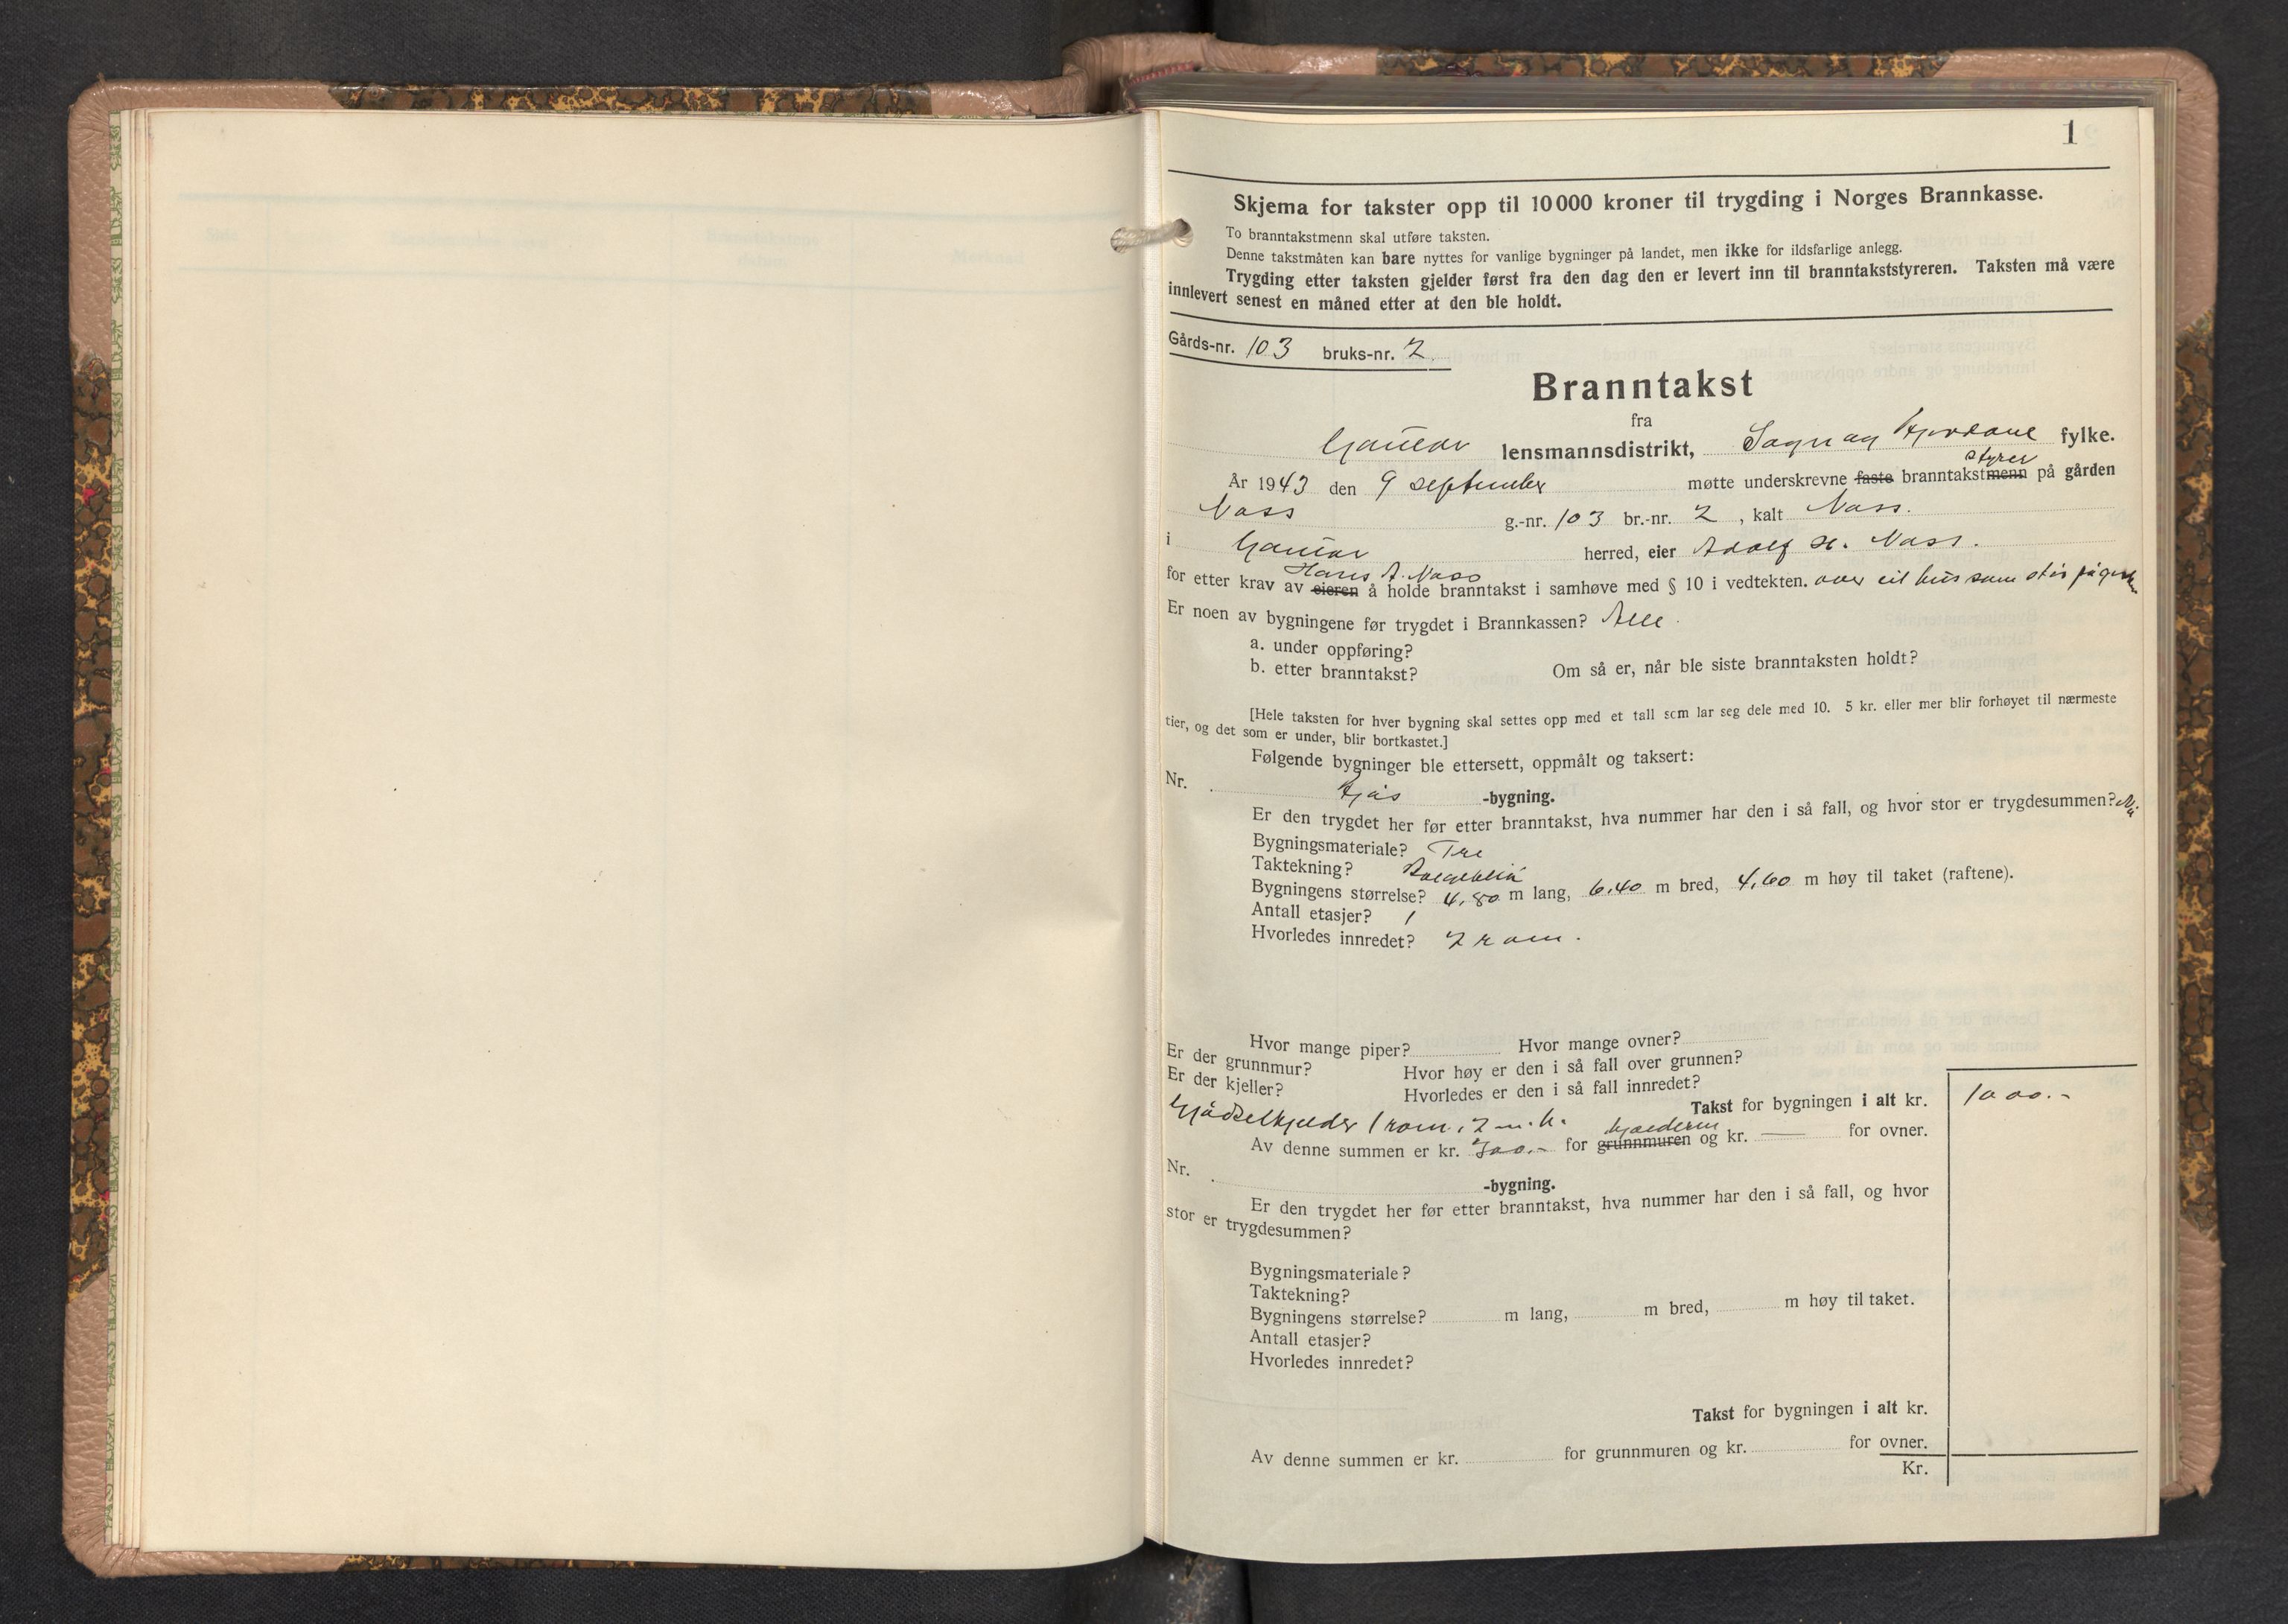 1
Skjema for takster opp til 10 000 kroner til trygding i Norges Brannkasse.
To branntakstmenn skal utføre taksten.
Denne takstmåten kan bare nyttes for vanlige bygninger på landet, men ikke for ildsfarlige anlegg.
Trygding etter taksten gjelder først fra den dag den er levert inn til branntakststyreren. Taksten må være
innlevert senest en måned etter at den ble holdt.
Gårds-nr. 103 bruks-nr. 2
Branntakst
fra
Gaular lensmannsdistrikt, Sogn og Fjordane fylke.
styrer
År 1943 den 9 september møtte underskrevne faste branntakstmenn på gården
Nass g.-nr. 103 br.-nr. 2, kalt Nass.
i Gaular herred, eier Adolf H. Nass.
Hans A. Nass
for etter krav av eieren å holde branntakst i samhøve med § 10 i vedtekten. over eit hus som står på
Er noen av bygningene før trygdet i Brannkassen? Alle
a. under oppføring?
b. etter branntakst? Om så er, når ble siste branntaksten holdt?
[Hele taksten for hver bygning skal settes opp med et tall som lar seg dele med 10. 5 kr. eller mer blir forhøyet til nærmeste
tier, og det som er under, blir bortkastet.]
Følgende bygninger ble ettersett, oppmålt og taksert:
Nr. Fjøs -bygning.
Er den trygdet her før etter branntakst, hva nummer har den i så fall, og hvor stor er trygdesummen?
Bygningsmateriale? Tre
Taktekning? Bølgeblikk
Bygningens størrelse? 4,80 m lang, 6,40 m bred, 4,60 m høy til taket (raftene).
Antall etasjer? 1
Hvorledes innredet? 2 rom.
Hvor mange piper? Hvor mange ovner?
Er der grunnmur? Hvor høy er den i så fall over grunnen?
Er der kjeller? Hvorledes er den i så fall innredet?
Takst for bygningen i alt kr. 1000.-
Gjødselkjelder 1 rom, 2 m. h.
kjelderen
Av denne summen er kr. 300.- for grunnmuren og kr. — for ovner.
Nr. -bygning.
Er den trygdet her før etter branntakst, hva nummer har den i så fall, og hvor
stor er trygdesummen?
Bygningsmateriale?
Taktekning?
Bygningens størrelse? m lang, m bred, m høy til taket.
Antall etasjer?
Hvorledes innredet?
Takst for bygningen i alt kr.
Av denne summen er kr. for grunnmuren og kr. for ovner.
Kr.